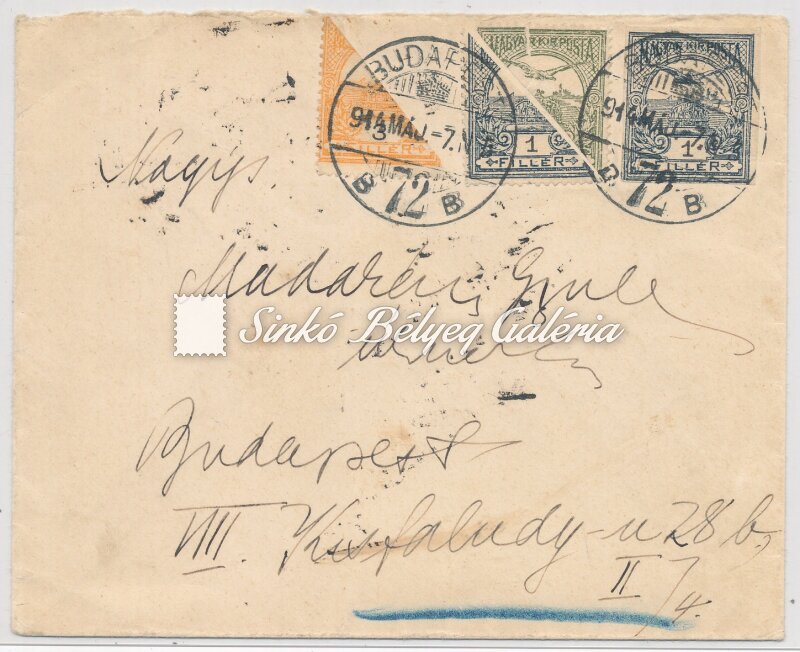 MAGYAR KIR. POSTA
1
FILLÉR
1
FILLÉR
FILLÉR
BUDAPE
914 MÁJ.-7.N
3
B 72 B
914 MÁJ.-7.N
72 B
Nagys.
Madarász Gyula
Sinkó Bélyeg Galéria
Budapest
VIII. Kisfaludy-u 28 b,
II/4.